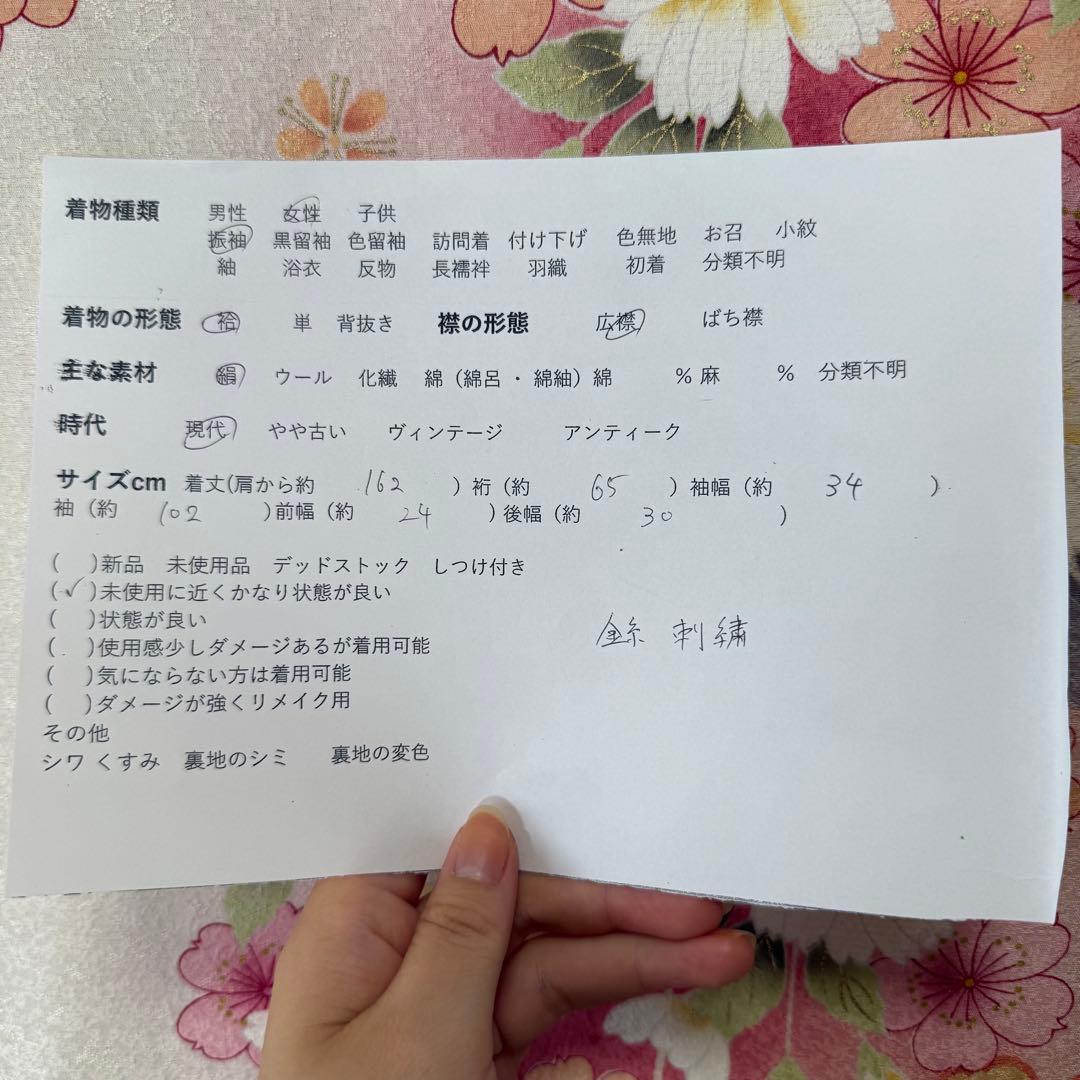 着物種類 男性 女性 子供
振袖 黒留袖 色留袖 訪問着 付け下げ 色無地 お召 小紋
紬 浴衣 反物 長襦袢 羽織 初着 分類不明
着物の形態 袷 単 背抜き 襟の形態 広襟 ばち襟
主な素材 絹 ウール 化繊 綿（綿呂・綿紬）綿 % 麻 % 分類不明
時代 現代 やや古い ヴィンテージ アンティーク
サイズcm 着丈(肩から約 162 ) 裄（約 65 ）袖幅（約 34 ）
袖（約 102 )前幅（約 24 )後幅（約 30 )
( )新品 未使用品 デッドストック しつけ付き
(✓)未使用に近くかなり状態が良い
( )状態が良い
( )使用感少しダメージあるが着用可能
( )気にならない方は着用可能
( )ダメージが強くリメイク用
金糸 刺繍
その他
シワ くすみ 裏地のシミ 裏地の変色